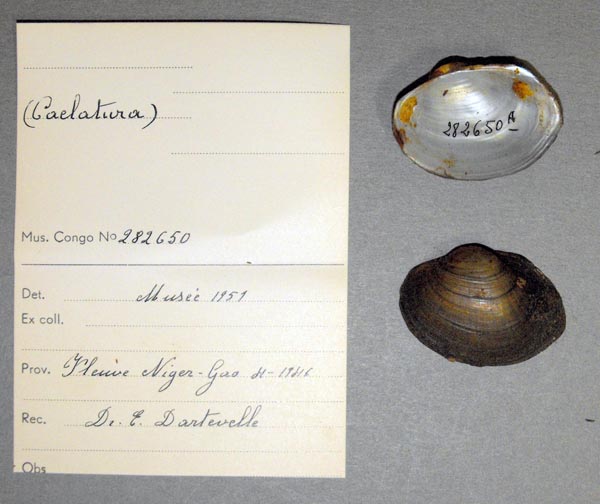 (Caelatura)
Mus. Congo No 282650
Det. Musée 1951
Ex coll.
Prov. Fleuve Niger-Gao
Rec. Dr. E. Dartevelle
Obs
282650 A